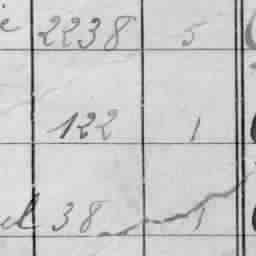 2238 5
122 1
38 1